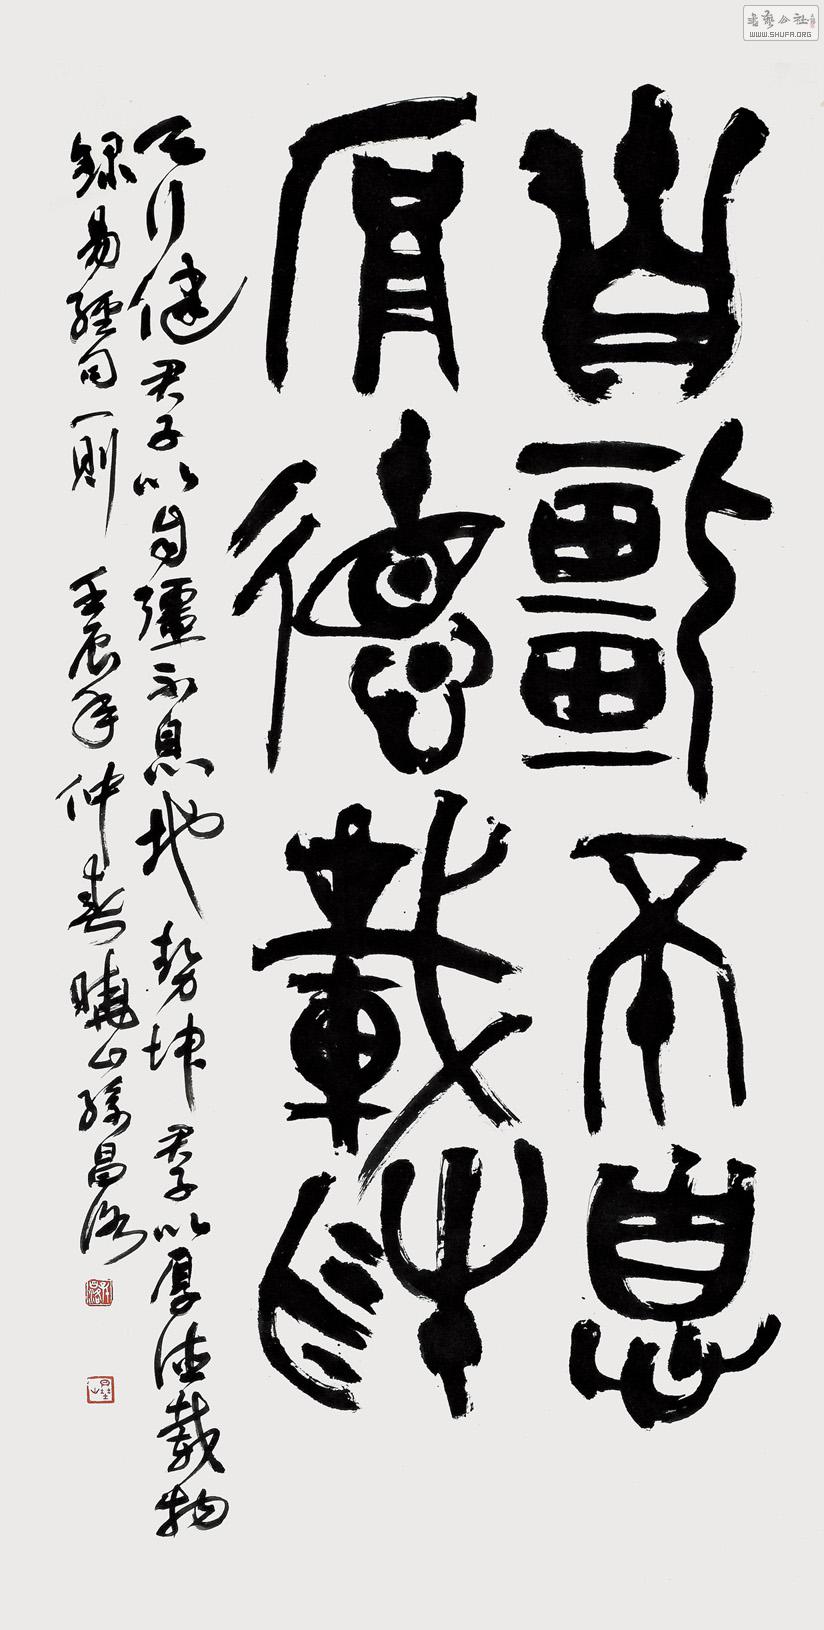 自彊不息
厚德載物
天行健君子以自彊不息地勢坤君子以厚德載物
録易經句一則 壬辰年仲春曉山孫昌洛
WWW.SHUFA.ORG